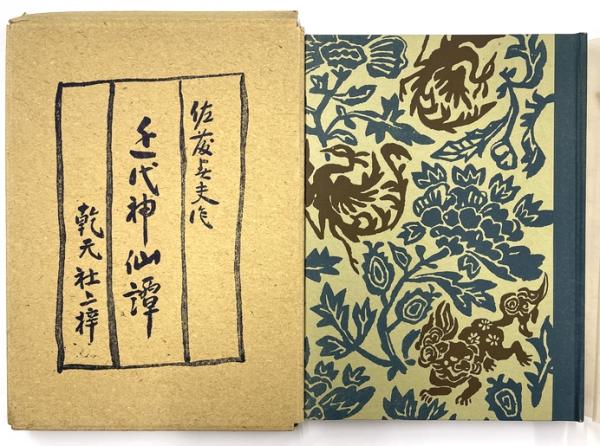 佐藤春夫作
近代神仙譚
乾元社上梓